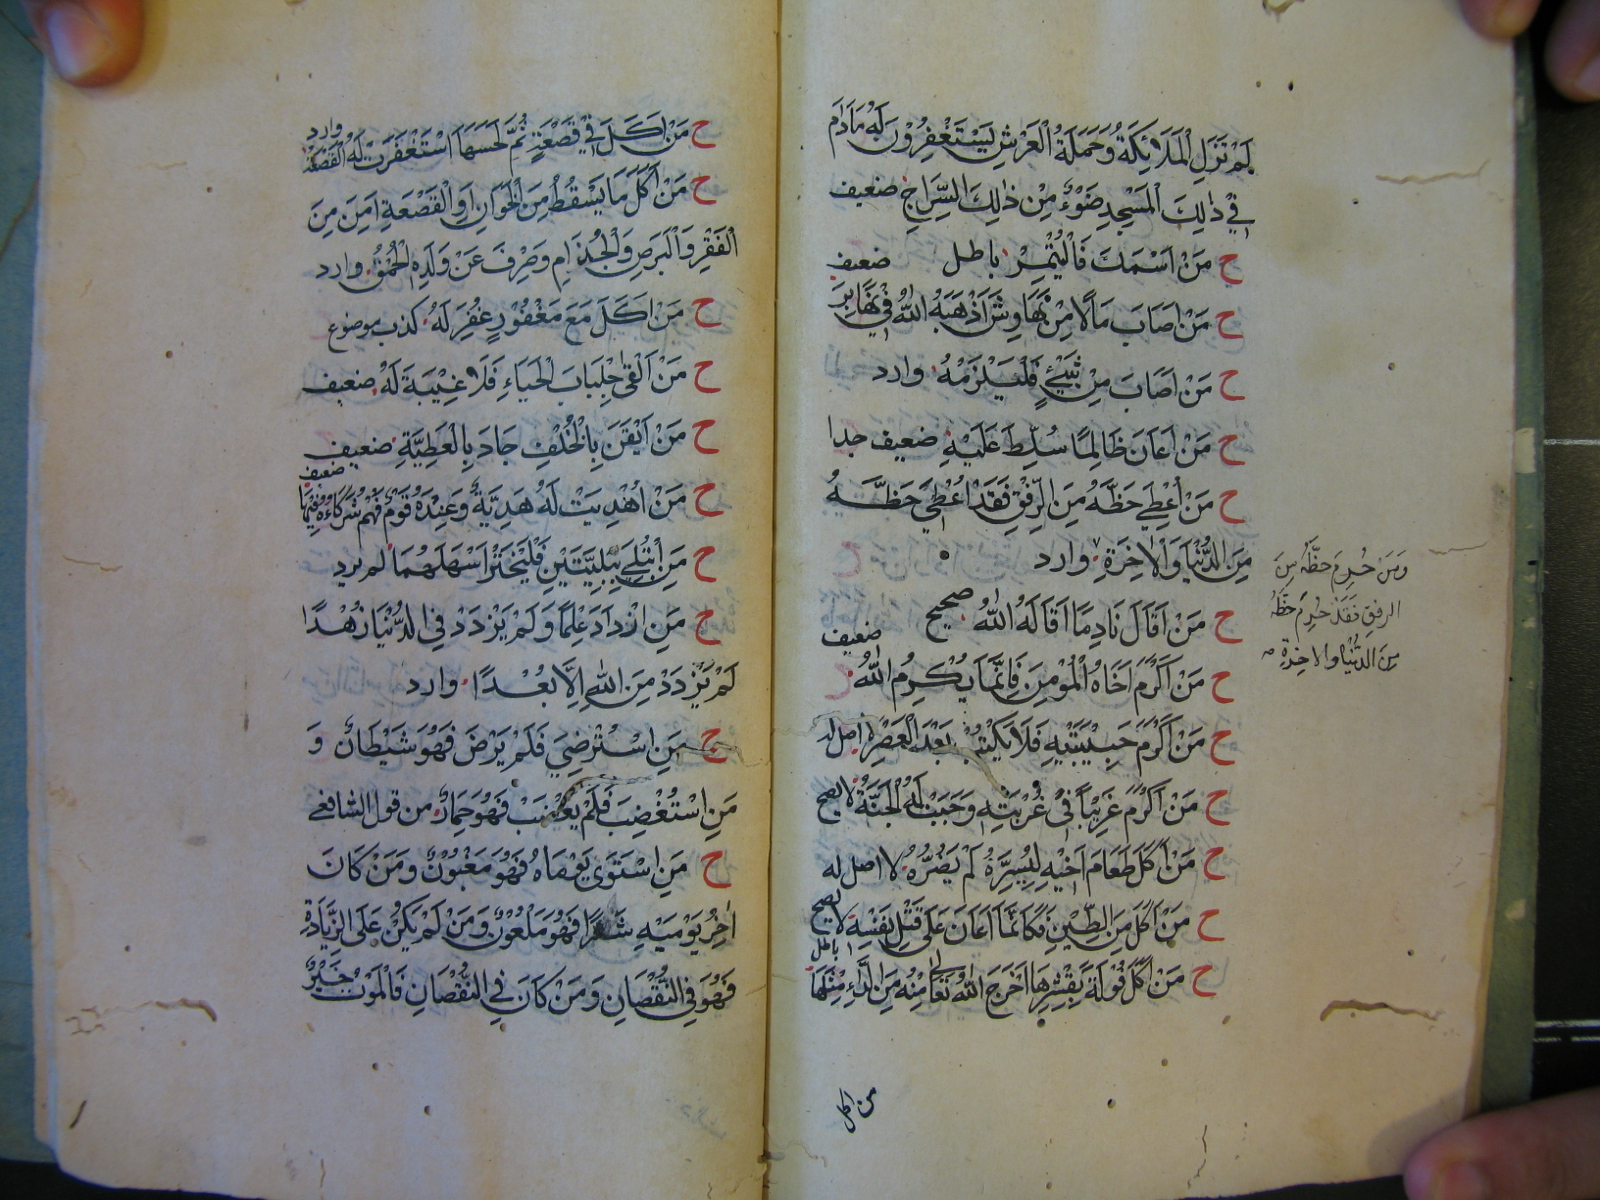 لَمْ تَزَلِ الْمَلَائِكَةُ وَحَمَلَةُ الْعَرْشِ يَسْتَغْفِرُوْنَ لَهُ مَادَامَ
فِيْ ذٰلِكَ الْمَسْجِدِ ضَوْءٌ مِنْ ذٰلِكَ السِّرَاجِ ضعيف
ح مَنْ اَسْمَكَ فَالْيُتْمِرْ باطل
ح مَنْ اَصَابَ مَالًا مِنْ نَهَاوِشَ اَذْهَبَهُ اللّٰهُ فِيْ نَهَابِرَ ضعيف
ح مَنْ اَصَابَ مِنْ شَيْءٍ فَلْيَلْزَمْهُ وارد
ح مَنْ اَعَانَ ظَالِمًا سُلِّطَ عَلَيْهِ ضعيف جدا
ح مَنْ اُعْطِيَ حَظَّهُ مِنَ الرِّفْقِ فَقَدْ اُعْطِيَ حَظَّهُ
مِنَ الدُّنْيَا وَالْاٰخِرَةِ وارد
وَمَنْ حُرِمَ حَظَّهُ مِنَ
الرفق فَقَدْ حُرِمَ حَظَّهُ
مِنَ الدُّنْيَا والاخِرَةِ
ح مَنْ اَقَالَ نَادِمًا اَقَالَهُ اللّٰهُ صحيح
ح مَنْ اَكْرَمَ اَخَاهُ الْمُؤْمِنَ فَاِنَّمَا يُكْرِمُ اللّٰهَ ضعيف
ح مَنْ اَكْرَمَ حَبِيْبَتَيْهِ فَلَا يَكْتُبْ بَعْدَ الْعَصْرِ لا اصل له
ح مَنْ اَكْرَمَ غَرِيْبًا فِيْ غُرْبَتِهِ وَجَبَتْ لَهُ الْجَنَّةُ لا يصح
ح مَنْ اَكَلَ طَعَامَ اَخِيْهِ لِيُسِرَّهُ لَمْ يَضُرَّهُ لا اصل له
ح مَنْ اَكَلَ مِنَ الطِّيْنِ فَكَاَنَّمَا اَعَانَ عَلٰى قَتْلِ نَفْسِهِ لا يصح
ح مَنْ اَكَلَ فُوْلَةً بِقِشْرِهَا اَخْرَجَ اللّٰهُ تَعَالٰى مِنْهُ مِنَ الدَّاءِ مِثْلَهَا باطل
من اكل
ح مَنْ اَكَلَ فِيْ قَصْعَةٍ ثُمَّ لَحَسَهَا اسْتَغْفَرَتْ لَهُ الْقَصْعَةُ وارد
ح مَنْ اَكَلَ مَا يَسْقُطُ مِنَ الْخُوَانِ اَوِ الْقَصْعَةِ اَمِنَ مِنَ
الْفَقْرِ وَالْبَرَصِ وَالْجُذَامِ وَصُرِفَ عَنْ وَلَدِهِ الْحُمُقُ وارد
ح مَنْ اَكَلَ مَعَ مَغْفُوْرٍ غُفِرَ لَهُ كذب موضوع
ح مَنْ اَلْقٰى جِلْبَابَ الْحَيَاءِ فَلَا غِيْبَةَ لَهُ ضعيف
ح مَنْ اَيْقَنَ بِالْخُلْفِ جَادَ بِالْعَطِيَّةِ ضعيف
ح مَنْ اُهْدِيَتْ لَهُ هَدِيَّةٌ وَعِنْدَهُ قَوْمٌ فَهُمْ شُرَكَاؤُهُ فِيْهَا ضعيف
ح مَنِ ابْتُلِيَ بِبَلِيَّتَيْنِ فَلْيَخْتَرْ اَسْهَلَهُمَا لم يرد
ح مَنِ ازْدَادَ عِلْمًا وَلَمْ يَزْدَدْ فِي الدُّنْيَا زُهْدًا
لَمْ يَزْدَدْ مِنَ اللّٰهِ اِلَّا بُعْدًا وارد
ح مَنِ اسْتُرْضِيَ فَلَمْ يَرْضَ فَهُوَ شَيْطَانٌ وَ
مَنِ اسْتُغْضِبَ فَلَمْ يَغْضَبْ فَهُوَ حِمَارٌ من قول الشافعي
ح مَنِ اسْتَوٰى يَوْمَاهُ فَهُوَ مَغْبُوْنٌ وَمَنْ كَانَ
اٰخِرُ يَوْمَيْهِ شَرًّا فَهُوَ مَلْعُوْنٌ وَمَنْ لَمْ يَكُنْ عَلَى الزِّيَادَةِ
فَهُوَ فِي النُّقْصَانِ وَمَنْ كَانَ فِي النُّقْصَانِ فَالْمَوْتُ خَيْرٌ